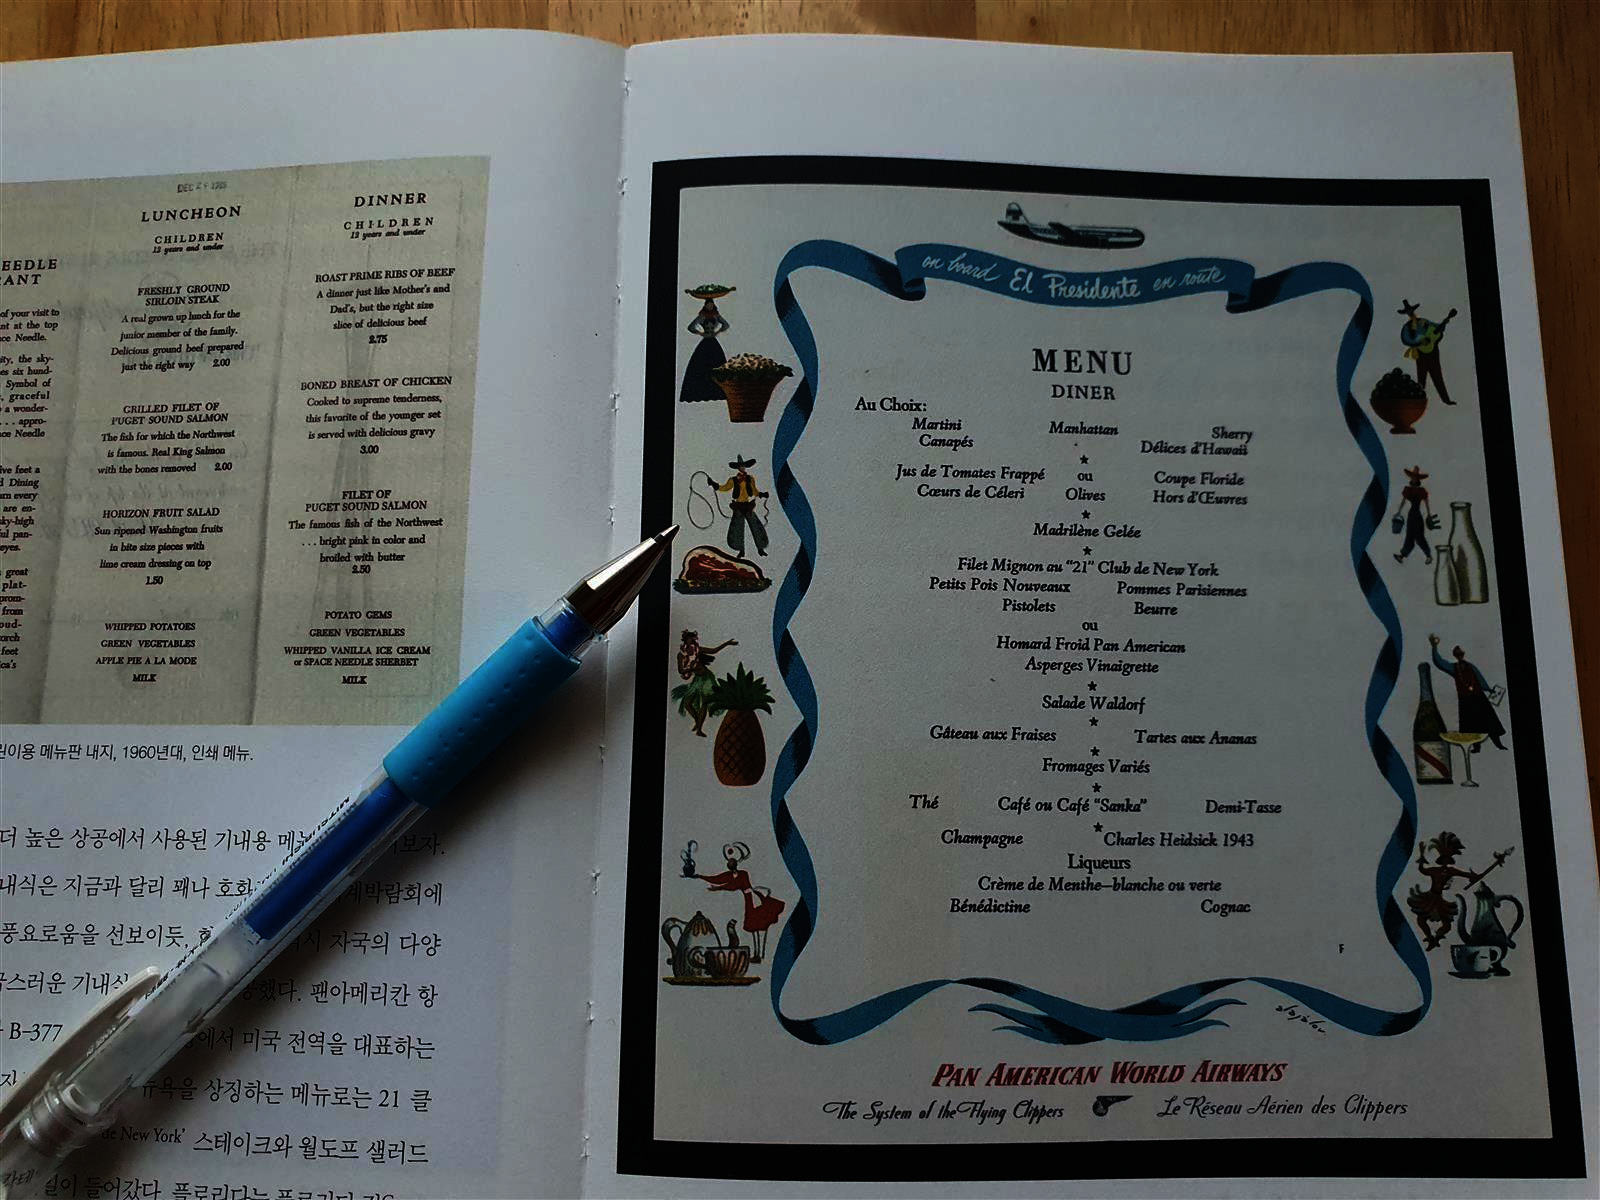 EEDLE
RANT
of your visit to
nt at the top
ce Needle.
ity, the sky-
es six hund-
Symbol of
, graceful
a wonder-
... appro-
ce Needle
ive feet a
d Dining
urn every
are en-
sky-high
ful pan-
eyes.
great
plat-
prom-
from
oud-
orch
feet
ica's
LUNCHEON
CHILDREN
12 years and under
FRESHLY GROUND
SIRLOIN STEAK
A real grown up lunch for the
junior member of the family.
Delicious ground beef prepared
just the right way 2.00
GRILLED FILET OF
PUGET SOUND SALMON
The fish for which the Northwest
is famous. Real King Salmon
with the bones removed 2.00
HORIZON FRUIT SALAD
Sun ripened Washington fruits
in bite size pieces with
lime cream dressing on top
1.50
WHIPPED POTATOES
GREEN VEGETABLES
APPLE PIE A LA MODE
MILK
DINNER
CHILDREN
12 years and under
ROAST PRIME RIBS OF BEEF
A dinner just like Mother's and
Dad's, but the right size
slice of delicious beef
2.75
BONED BREAST OF CHICKEN
Cooked to supreme tenderness,
this favorite of the younger set
is served with delicious gravy
3.00
FILET OF
PUGET SOUND SALMON
The famous fish of the Northwest
... bright pink in color and
broiled with butter
2.50
POTATO GEMS
GREEN VEGETABLES
WHIPPED VANILLA ICE CREAM
or SPACE NEEDLE SHERBET
MILK
린이용 메뉴판 내지, 1960년대, 인쇄 메뉴.
더 높은 상공에서 사용된 기내용 메뉴 보자.
내식은 지금과 달리 꽤나 호화 계박람회에
풍요로움을 선보이듯, 자국의 다양
스러운 기내식 했다. 팬아메리칸 항
B-377 에서 미국 전역을 대표하는
뉴욕을 상징하는 메뉴로는 21 클
de New York' 스테이크와 월도프 샐러드
들어갔다. 플로리다는
on board El Presidente en route
MENU
DINER
Au Choix:
Martini Manhattan Sherry
Canapés Délices d'Hawaii
Jus de Tomates Frappé ou Coupe Floride
Cœurs de Céleri Olives Hors d'Œuvres
Madrilène Gelée
Filet Mignon au "21" Club de New York
Petits Pois Nouveaux Pommes Parisiennes
Pistolets Beurre
ou
Homard Froid Pan American
Asperges Vinaigrette
Salade Waldorf
Gâteau aux Fraises Tartes aux Ananas
Fromages Variés
Thé Café ou Café "Sanka" Demi-Tasse
Champagne Charles Heidsick 1943
Liqueurs
Crème de Menthe—blanche ou verte
Bénédictine Cognac
F
PAN AMERICAN WORLD AIRWAYS
The System of the Flying Clippers Le Réseau Aérien des Clippers